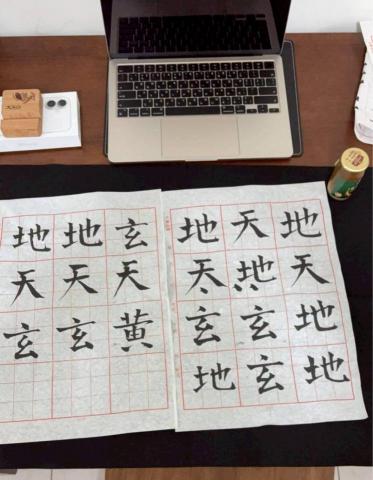 地地玄
天天天
玄玄黄
地天地
天地天
玄玄地
地玄地